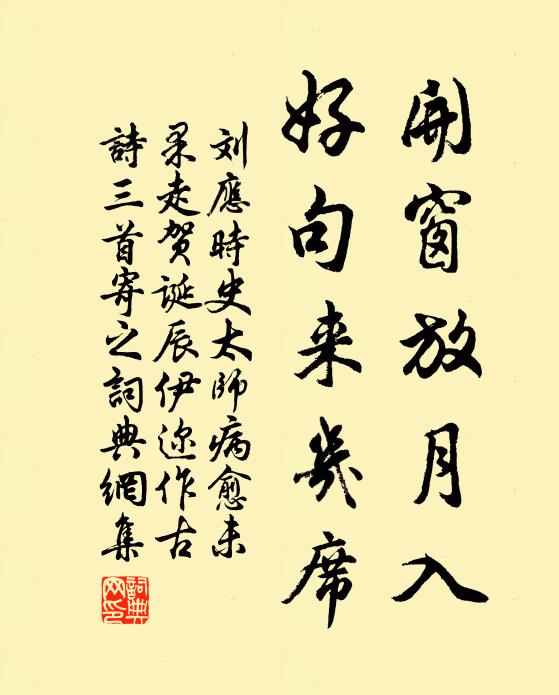 開窗放月入
好句来幾席
刘應時史太師病愈未
果走贺诞辰伊迩作古
詩三首寄之詞典網集
詞典网印